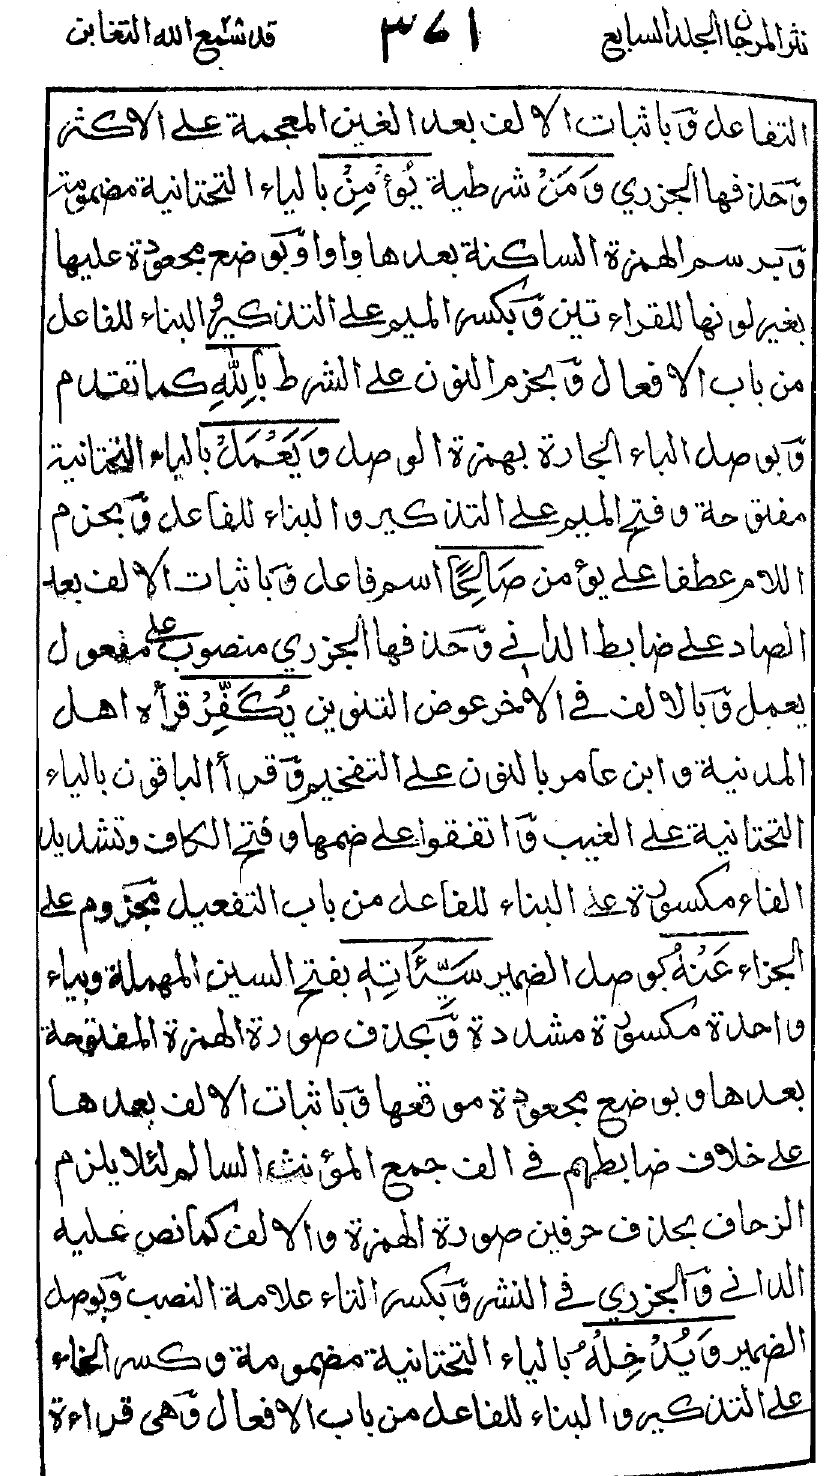 نثر المرجان الجلد السابع ٣٧١ قد سمع الله التغابن
التفاعل وَباثبات الالف بعد الغين المعجمة على الاكثر
وَحذفها الجزري وَمَنْ شرطية يُؤْمِنْ بالياء التحتانية مضمومة
وَبرسم الهمزة الساكنة بعدها واوا وَبوضع مجعودة عليها
بغير لونها للقراءتين وَبكسر الميم على التذكير والبناء للفاعل
من باب الافعال وَبجزم النون على الشرط بِاللهِ كما تقدم
وَبوصل الباء الجارة بهمزة الوصل وَيَعْمَلْ بالياء التحتانية
مفتوحة وفتح الميم على التذكير والبناء للفاعل وَبجزم
اللام عطفا على يؤمن صَالِحًا اسم فاعل وَباثبات الالف بعد
الصاد على ضابط الداني وَحذفها الجزري منصوب على مفعول
يعمل وَبالالف في الآخر عوض التنوين يُكَفِّرْ قرأه اهل
المدنية وابن عامر بالنون على التفخيم وَقرأ الباقون بالياء
التحتانية على الغيب وَاتفقوا على ضمها وفتح الكاف وتشديد
الفاء مكسورة على البناء للفاعل من باب التفعيل مجزوم على
الجزاء عَنْهُ بوصل الضمير سَيِّئَاتِهٖ بفتح السين المهملة وبياء
واحدة مكسورة مشددة وَبحذف صورة الهمزة المفتوحة
بعدها وبوضع مجعودة موقعها وَباثبات الالف بعدها
على خلاف ضابطهم في الف جمع المؤنث السالم لئلا يلزم
الزحاف بحذف حرفين صورة الهمزة والالف كما نص عليه
الداني وَالجزري في النشر وَبكسر التاء علامة النصب وَبوصل
الضمير وَيُدْخِلْهُ بالياء التحتانية مضمومة وكسر الخاء
على التذكير والبناء للفاعل من باب الافعال وَهي قراءة